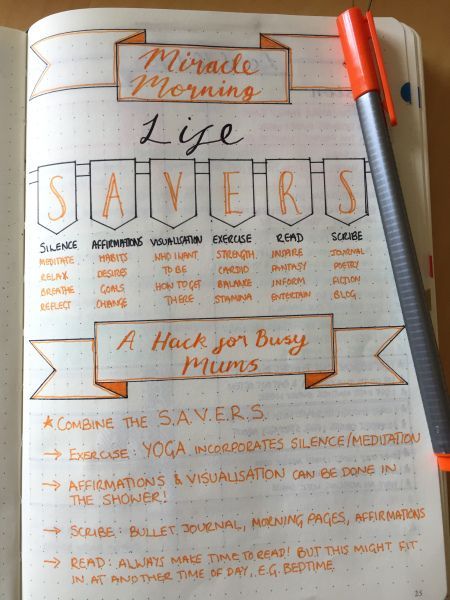 Miracle
Morning
Life
S A V E R S
SILENCE AFFIRMATIONS VISUALISATION EXERCISE READ SCRIBE
MEDITATE HABITS WHO I WANT STRENGTH INSPIRE JOURNAL
RELAX DESIRES TO BE CARDIO FANTASY POETRY
BREATHE GOALS HOW TO GET BALANCE INFORM FICTION
REFLECT CHANGE THERE STAMINA ENTERTAIN BLOG
A Hack for Busy
Mums
★ COMBINE THE S.A.V.E.R.S.
→ EXERCISE: YOGA INCORPORATES SILENCE/MEDITATION
→ AFFIRMATIONS & VISUALISATION CAN BE DONE IN
THE SHOWER!
→ SCRIBE: BULLET JOURNAL, MORNING PAGES, AFFIRMATIONS
→ READ: ALWAYS MAKE TIME TO READ! BUT THIS MIGHT FIT
IN AT ANOTHER TIME OF DAY.. E.G. BEDTIME.
25